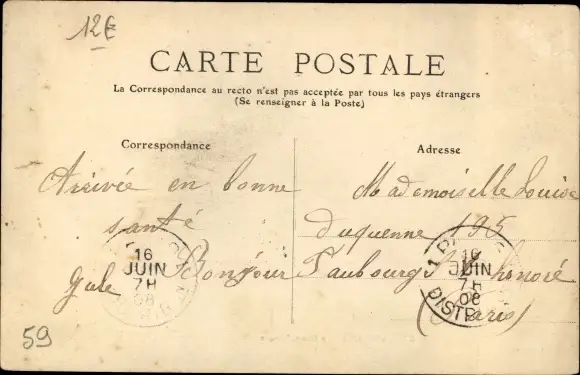 12€
CARTE POSTALE
La Correspondance au recto n'est pas acceptée par tous les pays étrangers
(Se renseigner à la Poste)
Correspondance
Arrivée en bonne
santé
Bonjour
Adresse
Mademoiselle Louise
duquenne 195
Faubourg St honoré
(Paris)
16
JUIN
7H
08
16
JUIN
7H
08
DISTR
59